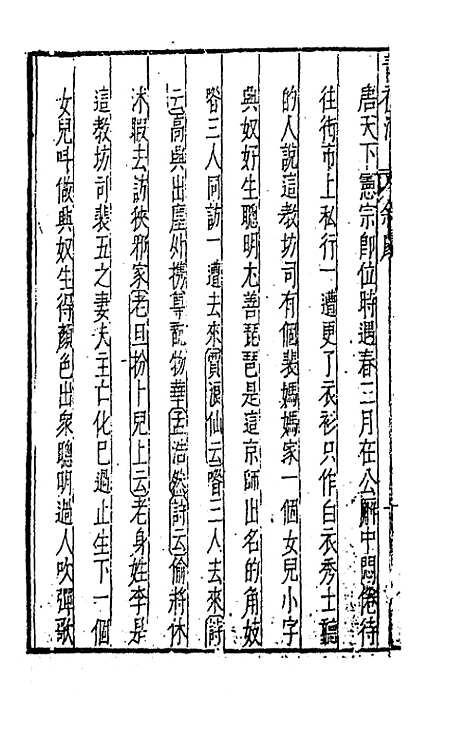 唐天下憲宗卽位時遇春三月在公廨中悶倦待
往街市上私行一遭更了衣衫只作白衣秀士聽
的人說這教坊司有個裴媽媽家一個女兒小字
與奴好生聰明尤善琵琶是這京師出名的角妓
喒三人同訪一遭去來賈浪仙云喒三人去來詩
云高興出塵外携尊翫物華孟浩然詩云偷將休
沐暇去訪狹邪家老旦扮卜兒上云老身姓李是
這教坊司裴五之妻夫主亡化已過止生下一個
女兒呌做興奴生得顏色出衆聰明過人吹彈歌